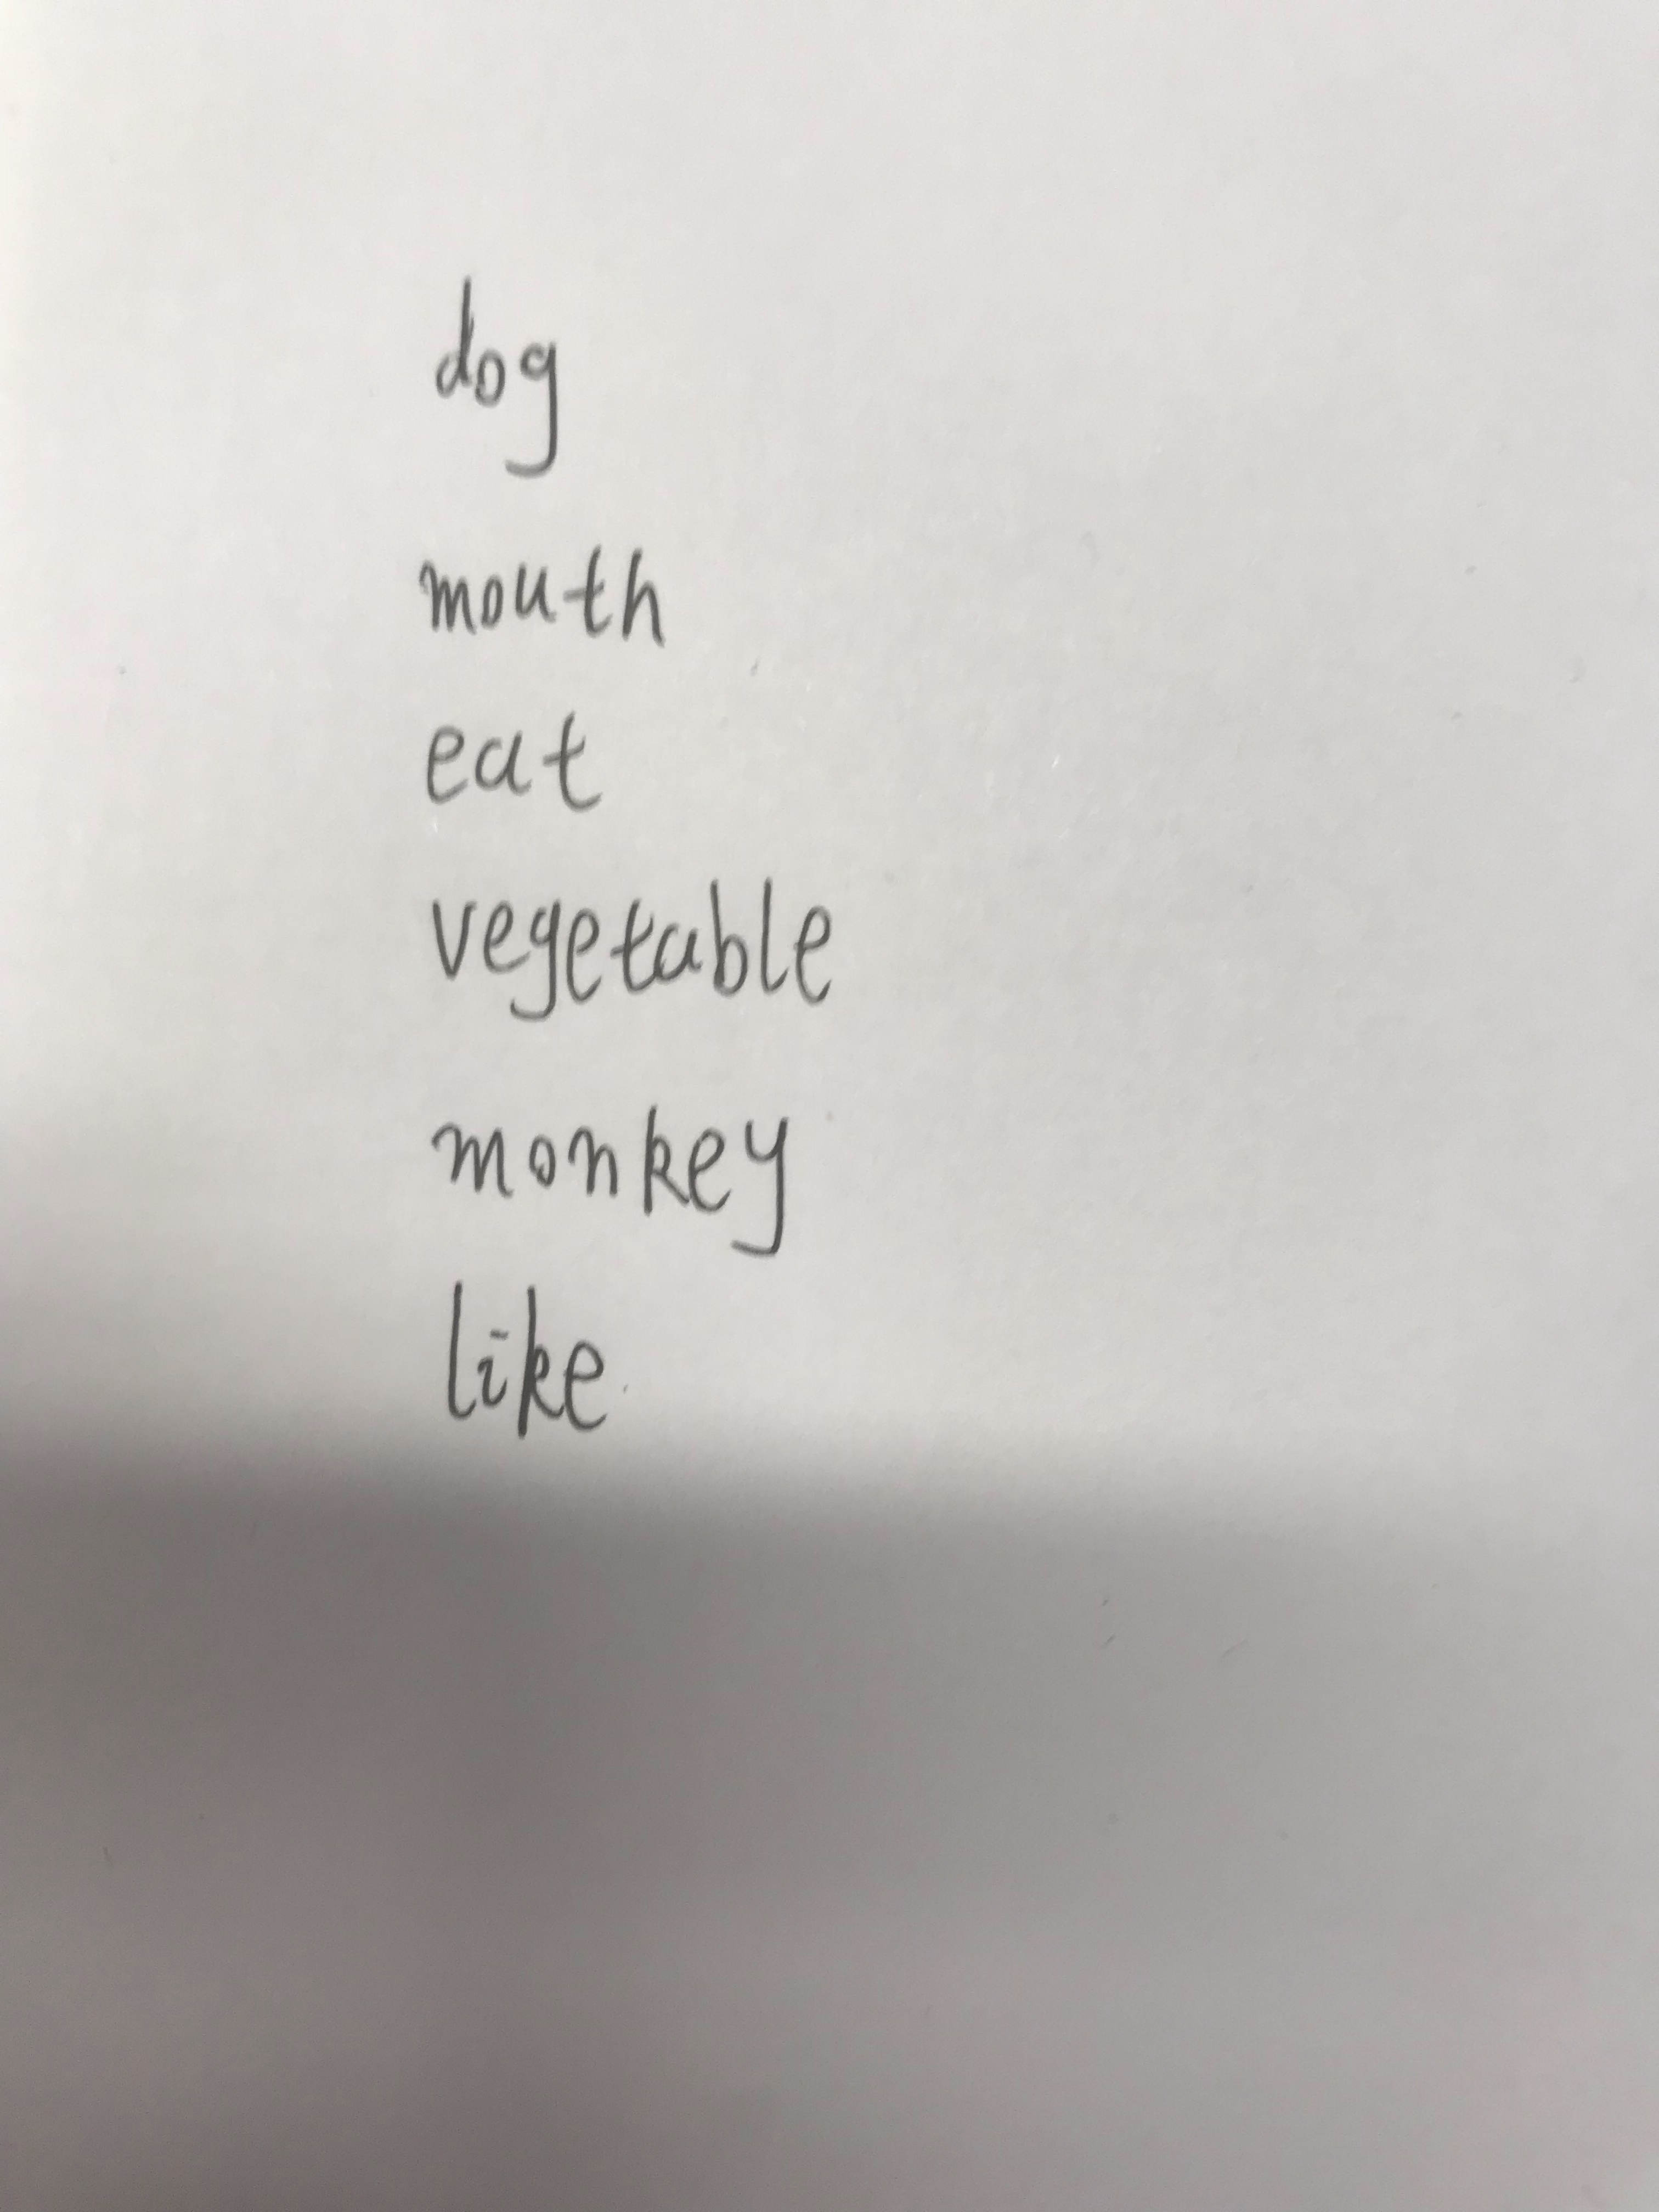 dog
mouth
eat
vegetable
monkey
like